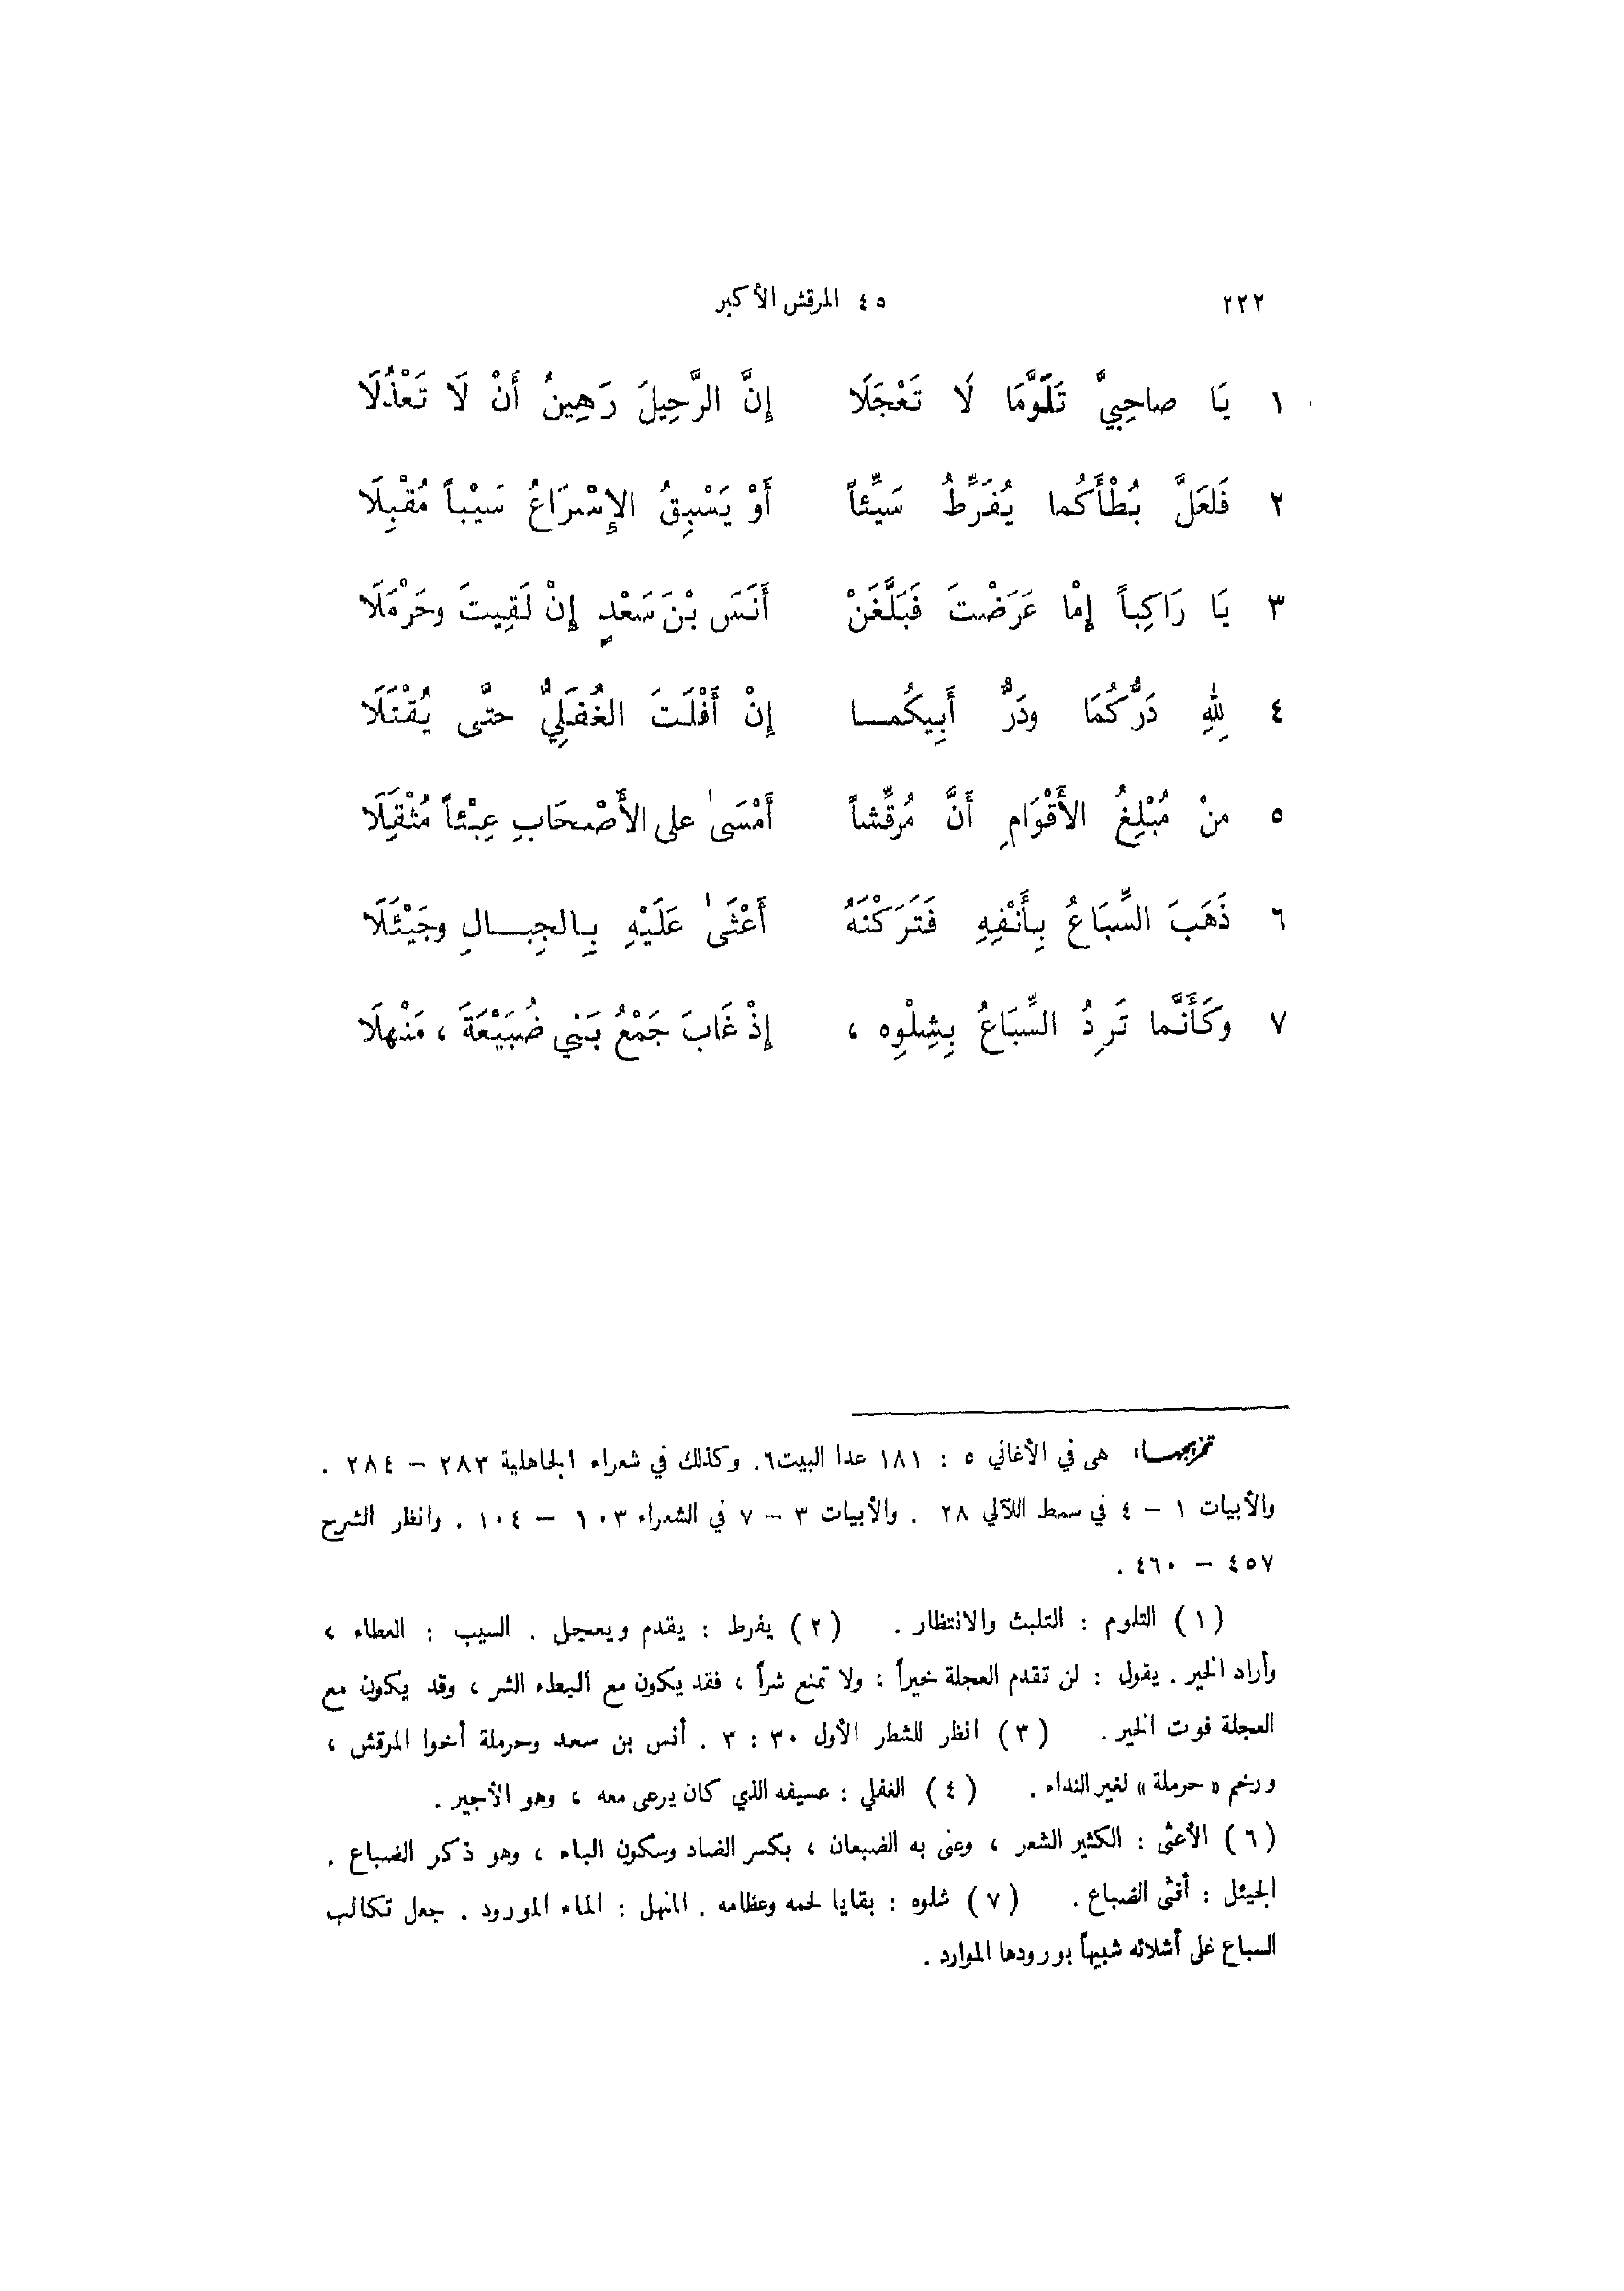 ٢٢٢ ٤٥ المرقش الأكبر
١ يَا صاحِبيَّ تَلَوَّمَا لَا تَعْجَلَا إِنَّ الرَّحِيلَ رَهِينُ أَنْ لَا تَعْذُلَا
٢ فَلعَلَّ بُطْأَكُما يُفَرِّطُ سَيِّئاً أَوْ يَسْبِقُ الإِسْرَاعُ سَيْباً مُقْبِلَا
٣ يَا رَاكِباً إِمَّا عَرَضْتَ فَبَلِّغَنْ أَنَسَ بْنَ سَعْدٍ إِنْ لَقِيتَ وحَرْمَلَا
٤ لِلهِ دَرُّكُمَا ودَرُّ أَبِيكُمــا إِنْ أَفْلَتَ الغُفَلِيُّ حتَّى يُقْتَلَا
٥ منْ مُبْلِغُ الأَقْوَامِ أَنَّ مُرَقِّشاً أَمْسَى على الأَصْحَابِ عِبْئاً مُثْقِلَا
٦ ذَهَبَ السِّبَاعُ بِأَنْفِهِ فَتَرَكْنَهُ أَعْثَى عَلَيْهِ بِالجِبــالِ وجَيْئَلَا
٧ وكَأَنَّما تَرِدُ السِّبَاعُ بِشِلْوِه ، إِذْ غَابَ جَمْعُ بَنِي ضُبَيْعَةَ ، مَنْهلَا
تخريجهــا: هى في الأغاني ٥ : ١٨١ عدا البيت٦. وكذلك في شعراء الجاهلية ٢٨٣ – ٢٨٤ .
والأبيات ١ – ٤ في سمط اللآلي ٢٨ . والأبيات ٣ – ٧ في الشعراء ١٠٣ – ١٠٤ . وانظر الشرح
٤٥٧ – ٤٦٠ .
( ١ ) التلوم : التلبث والانتظار . ( ٢ ) يفرط : يقدم ويعجل . السيب : العطاء ،
وأراد الخير . يقول : لن تقدم العجلة خيراً ، ولا تمنع شراً ، فقد يكون مع البطء الشر ، وقد يكون مع
العجلة فوت الخير . ( ٣ ) انظر للشطر الأول ٣٠ : ٣ . أنس بن سعد وحرملة أخوا المرقش ،
ورخم « حرملة » لغير النداء . ( ٤ ) الغفلي : عسيفه الذي كان يرعى معه ، وهو الأجير .
( ٦ ) الأعثى : الكثير الشعر ، وعنى به الضبعان ، بكسر الضاد وسكون الباء ، وهو ذكر الضباع .
الجيئل : أنثى الضباع . ( ٧ ) شلوه : بقايا لحمه وعظامه . المنهل : الماء المورود . جعل تكالب
السباع على أشلائه شبيهاً بورودها الموارد .